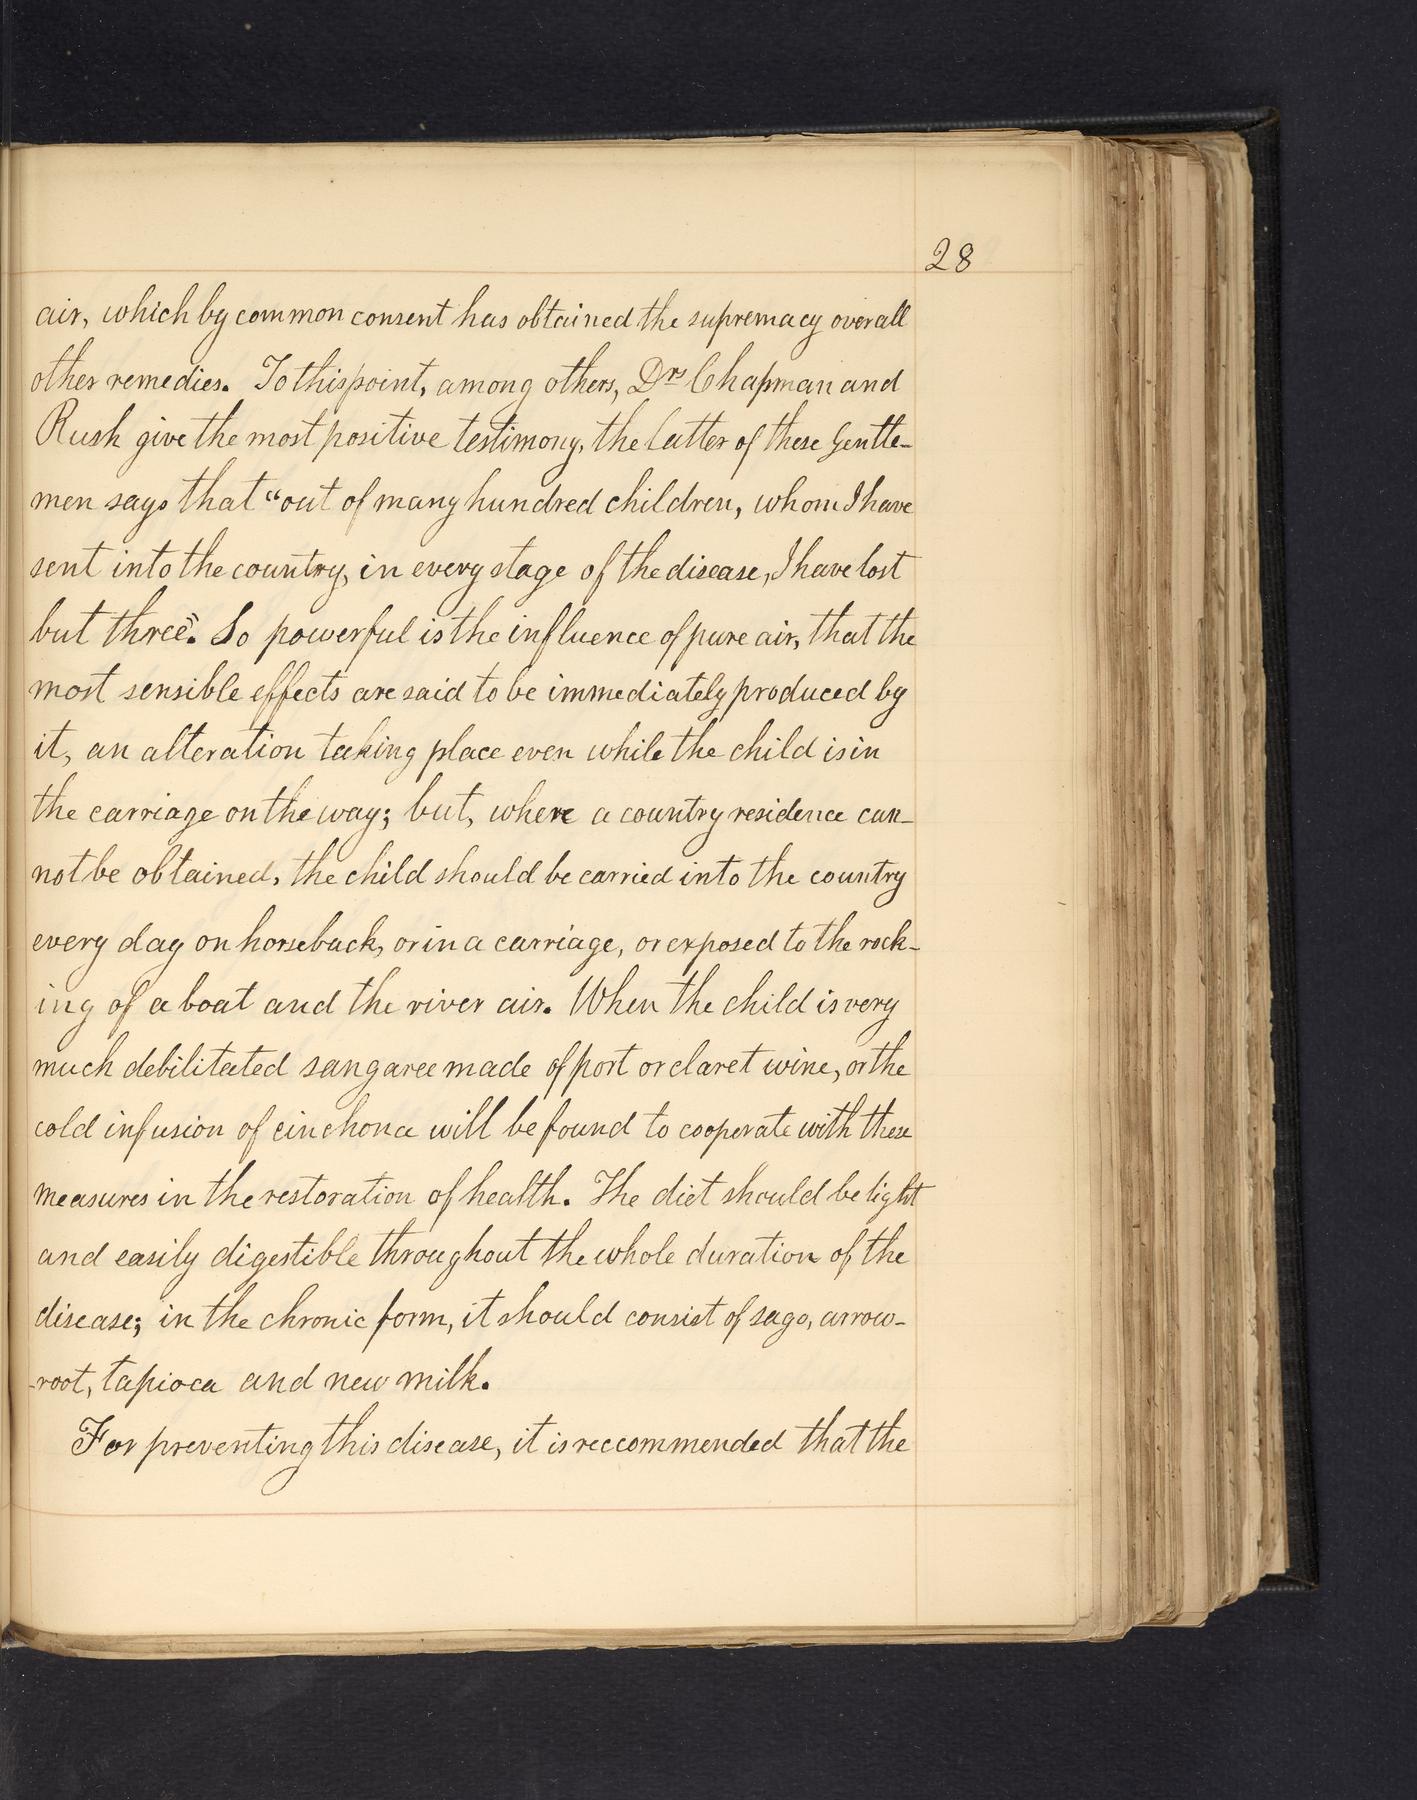 28
air, which by common consent has obtained the supremacy over all
other remedies. To this point, among others, Drs Chapman and
Rush give the most positive testimony, the latter of these Gentle-
men says that "out of many hundred children, whom I have
sent into the country, in every stage of the disease, I have lost
but three". So powerful is the influence of pure air, that the
most sensible effects are said to be immediately produced by
it, an alteration taking place even while the child is in
the carriage on the way; but, where a country residence can-
not be obtained, the child should be carried into the country
every day on horseback, or in a carriage, or exposed to the rock-
ing of a boat and the river air. When the child is very
much debilitated sangaree made of port or claret wine, or the
cold infusion of cinchona will be found to cooperate with these
measures in the restoration of health. The diet should be light
and easily digestible throughout the whole duration of the
disease; in the chronic form, it should consist of sago, arrow-
-root, tapioca and new milk.
For preventing this disease, it is reccommended that the